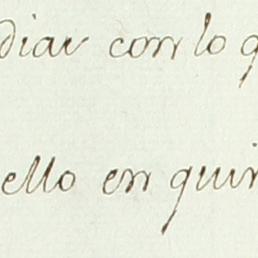 diar con lo q
ello en quin